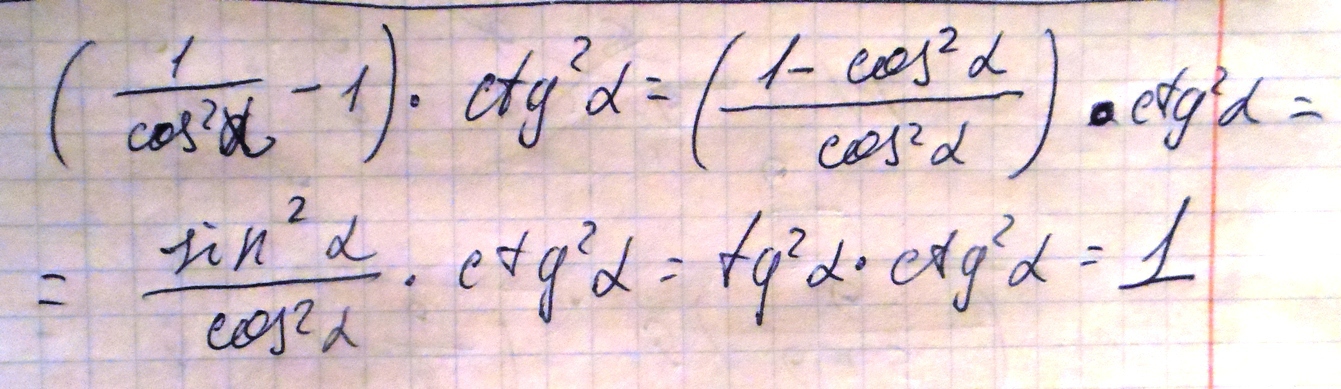 (1/cos²α - 1) · ctg²α = ((1 - cos²α)/cos²α) · ctg²α =
= sin²α/cos²α · ctg²α = tg²α · ctg²α = 1